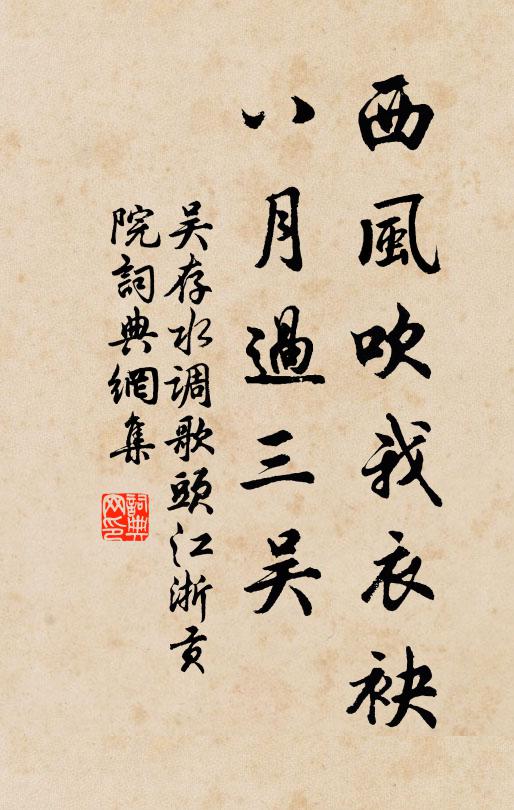 西風吹我衣袂
八月過三吴
吴存水调歌頭江浙贡
院詞典網集
詞典
网印